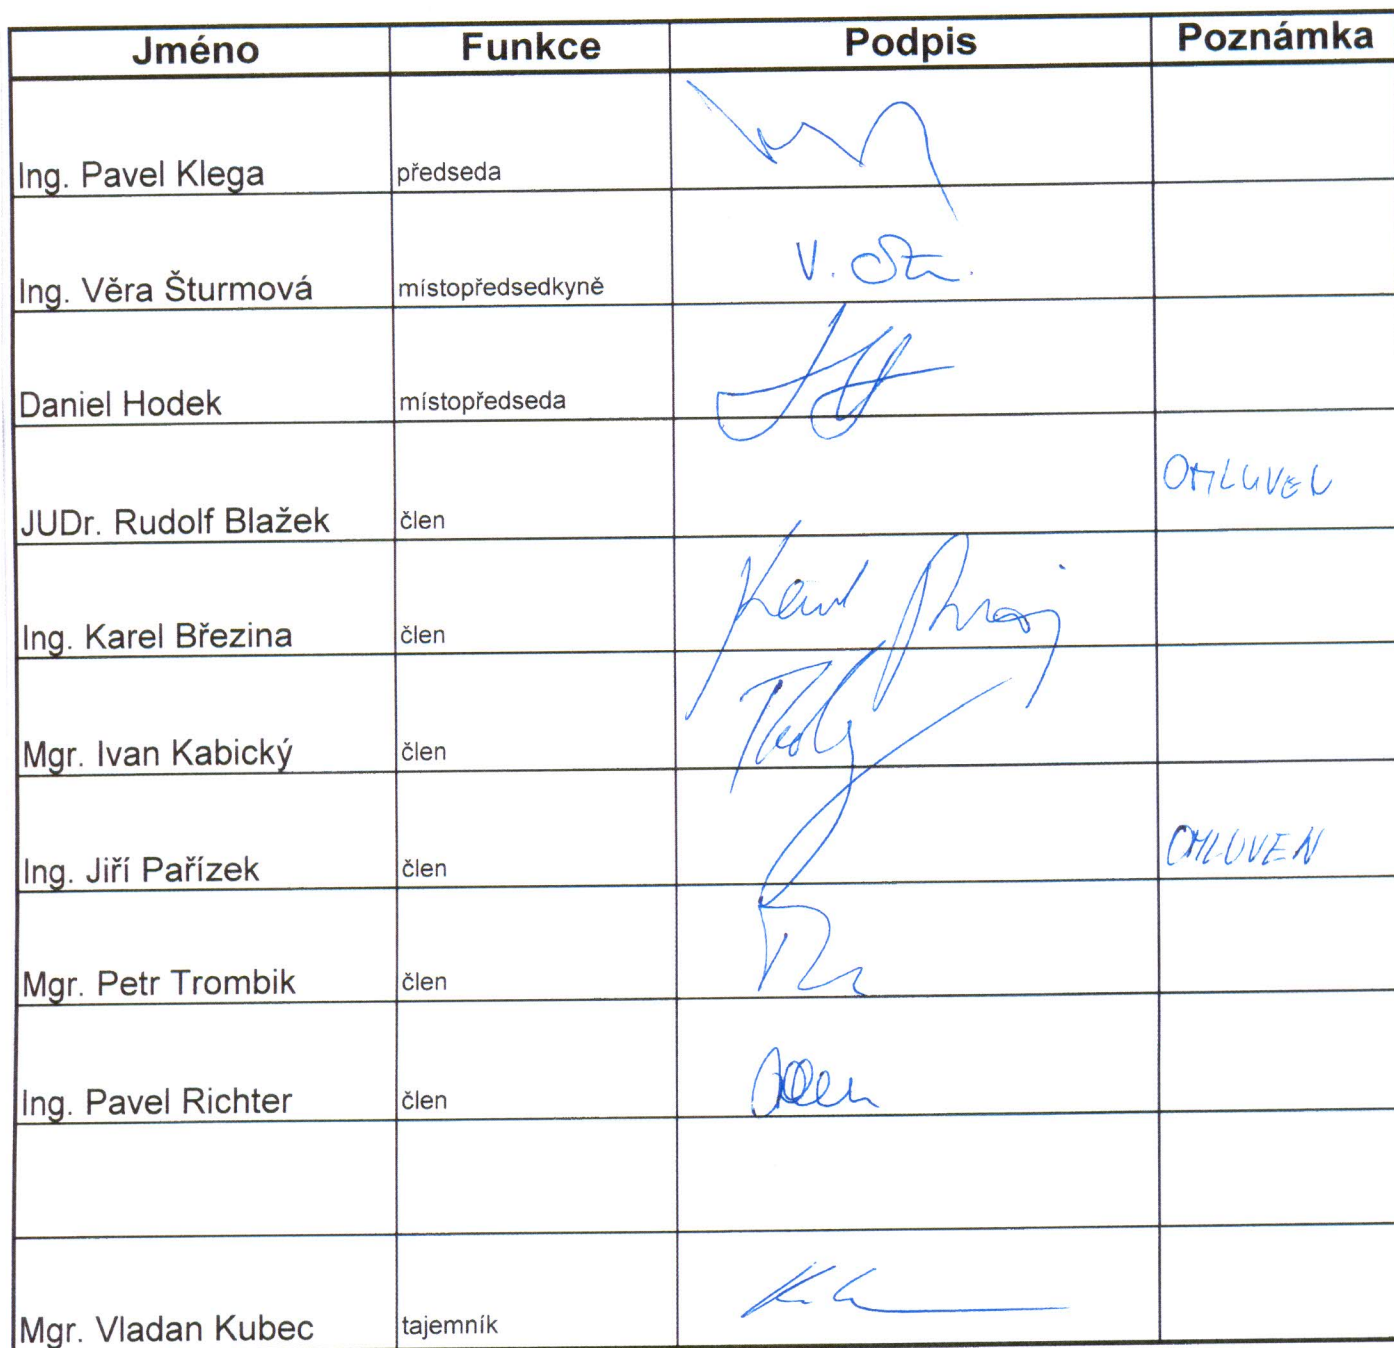 Jméno Funkce Podpis Poznámka
Ing. Pavel Klega předseda
Ing. Věra Šturmová místopředsedkyně V.
Daniel Hodek místopředseda
JUDr. Rudolf Blažek člen OMLUVEN
Ing. Karel Březina člen Karel
Mgr. Ivan Kabický člen
Ing. Jiří Pařízek člen OMLUVEN
Mgr. Petr Trombik člen
Ing. Pavel Richter člen
Mgr. Vladan Kubec tajemník